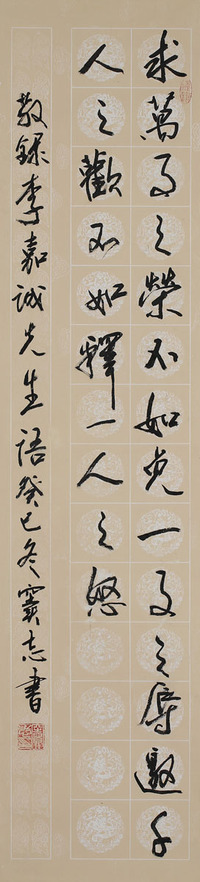 求萬事之榮不如免一事之辱邀千
人之歡不如釋一人之怨
敬錄李嘉誠先生語癸巳冬竇志書